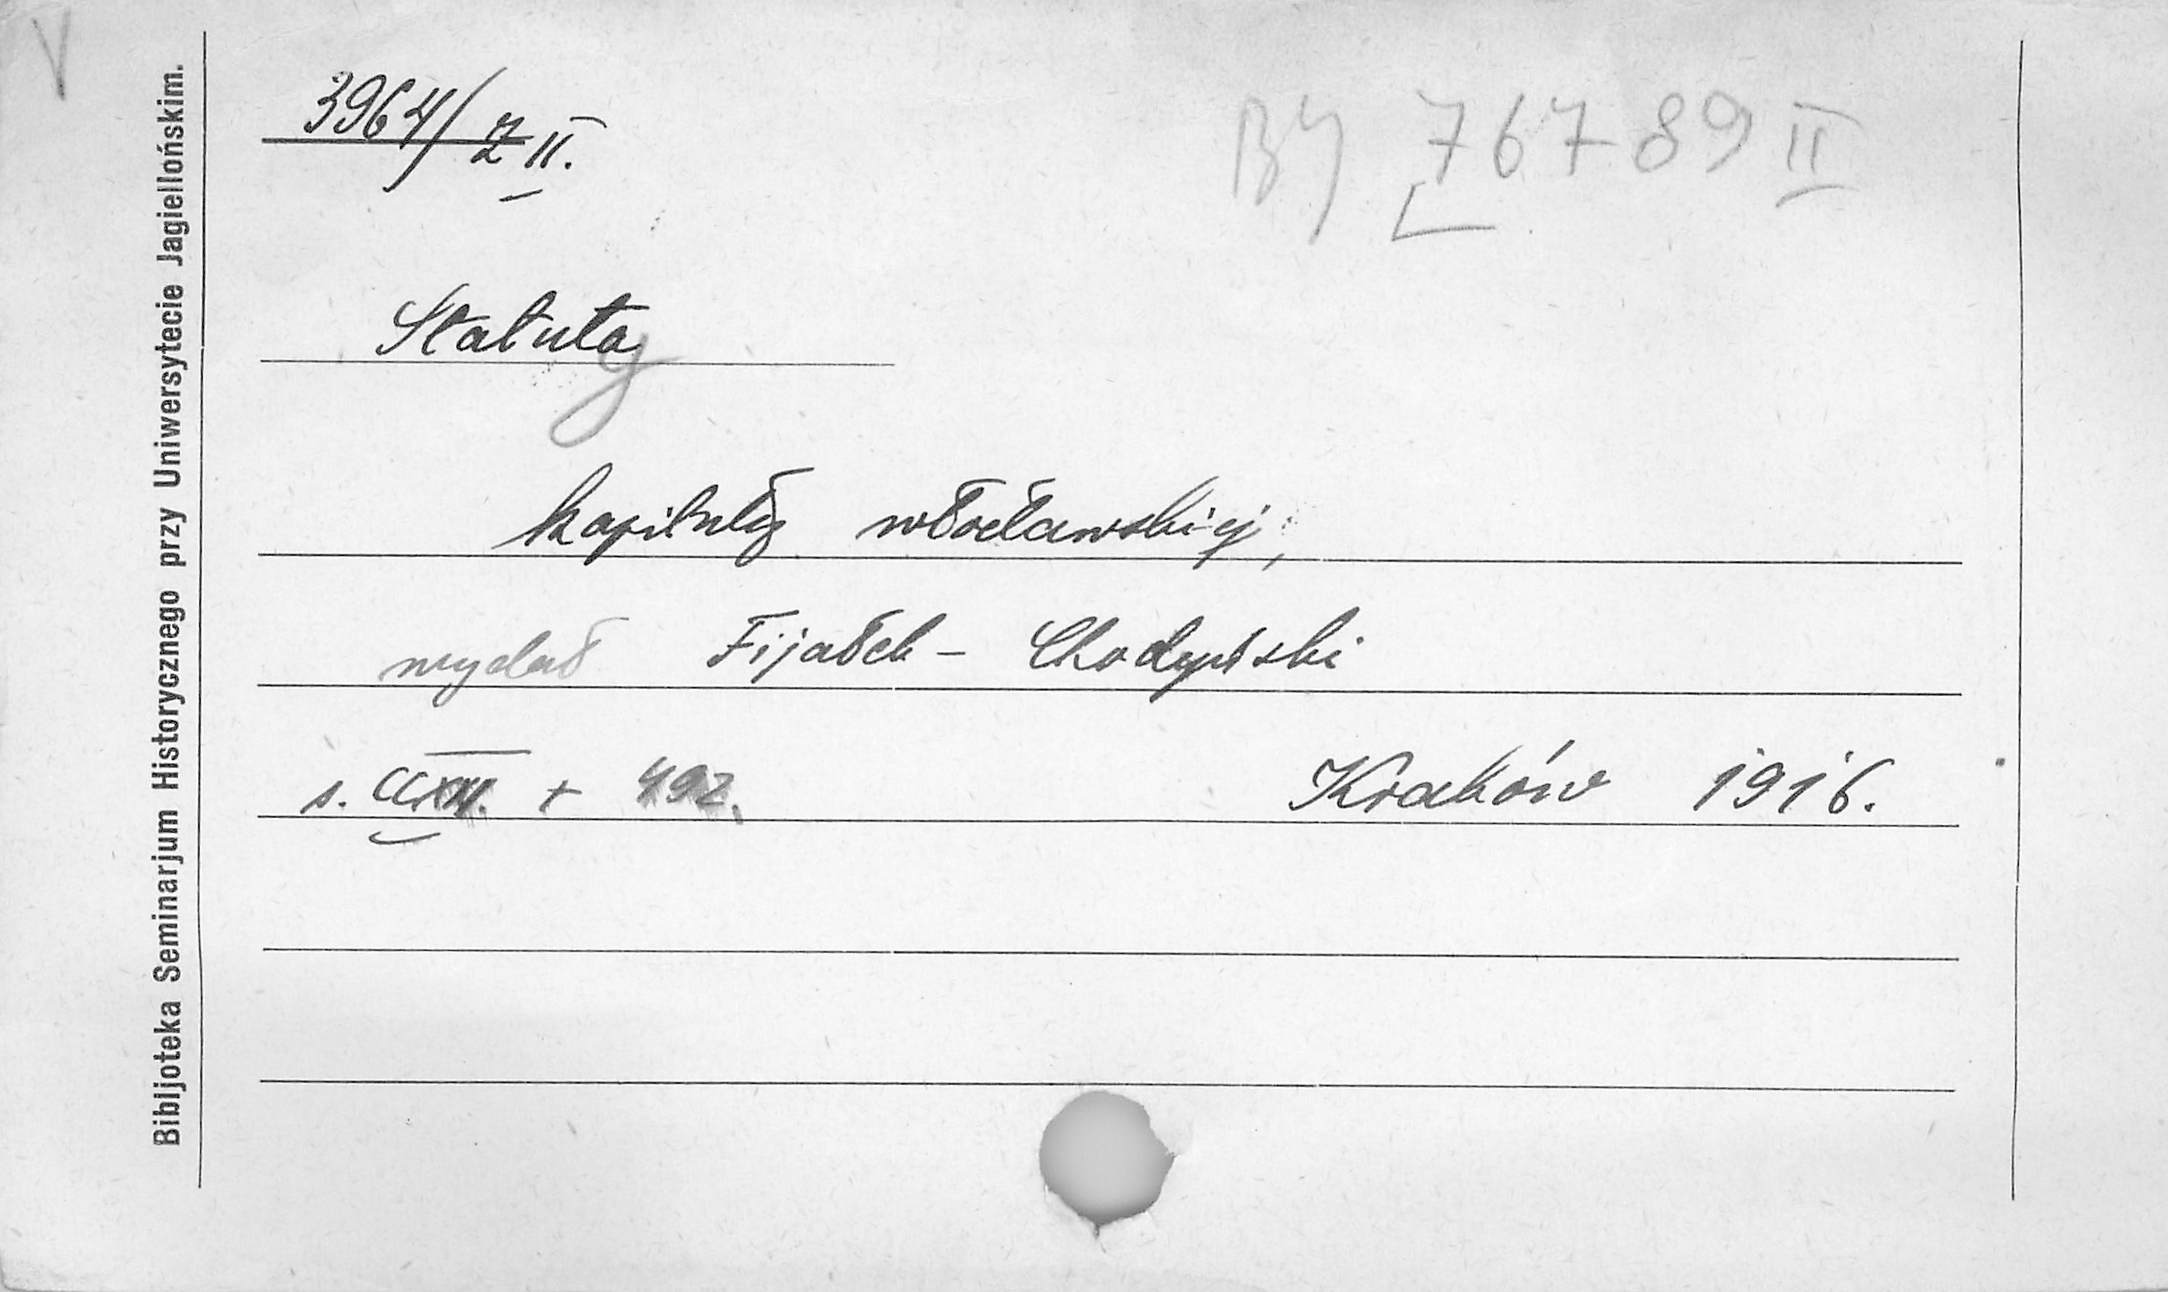 V
3964/Z II.
BJ 76789 II
Statuta
y
kapituły włocławskiej,
wydał Fijałek - Chodyński
s. CCXII. + 492. Kraków 1916.
Bibljoteka Seminarjum Historycznego przy Uniwersytecie Jagiellońskim.